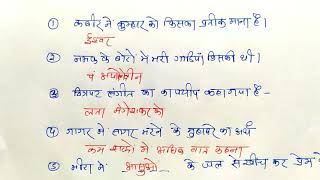 ① कबीर ने कुम्हार को किसका प्रतीक माना है।
ईश्वर
② नमक के बोरो से भरी गाड़ियाँ किसकी थी।
पं अलोपीदीन
③ चित्रपट संगीत का का पर्याय कहा गया है -
लता मंगेशकर को
④ गागर में सागर भरने के मुहावरे का अर्थ
कम शब्दो मे अधिक बात कहना
⑤ मीरा ने आँसुओं के जल से सींच कर प्रेम